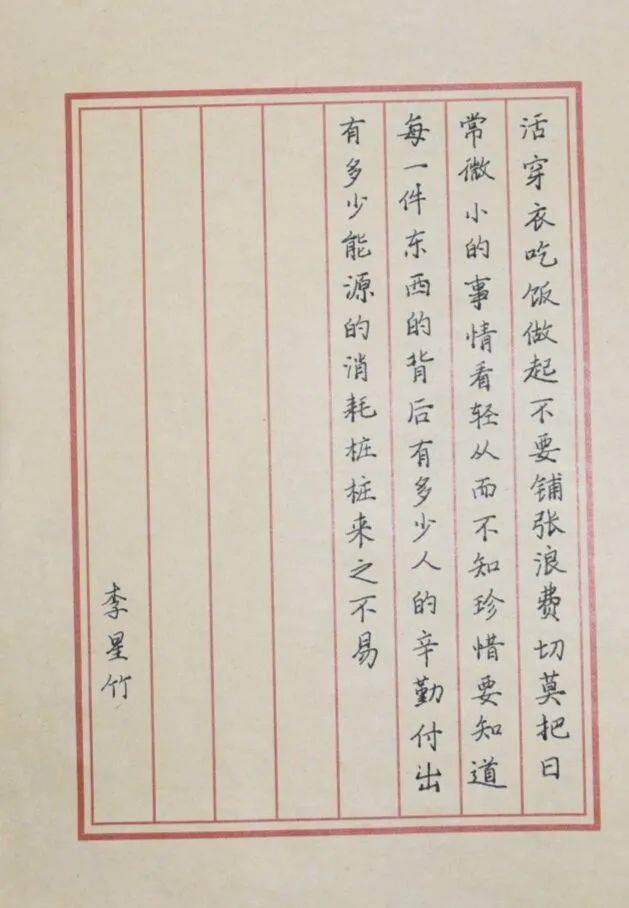 活穿衣吃饭做起不要铺张浪费切莫把日
常微小的事情看轻从而不知珍惜要知道
每一件东西的背后有多少人的辛勤付出
有多少能源的消耗桩桩来之不易
李星竹